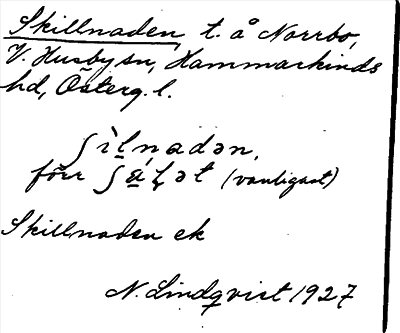 Skillnaden, t. å Norrbo,
V. Husby sn, Hammarkinds
hd, Österg. l.
ʃìlnadən,
förr (vanligast)
Skillnaden ek
N. Lindqvist 1927